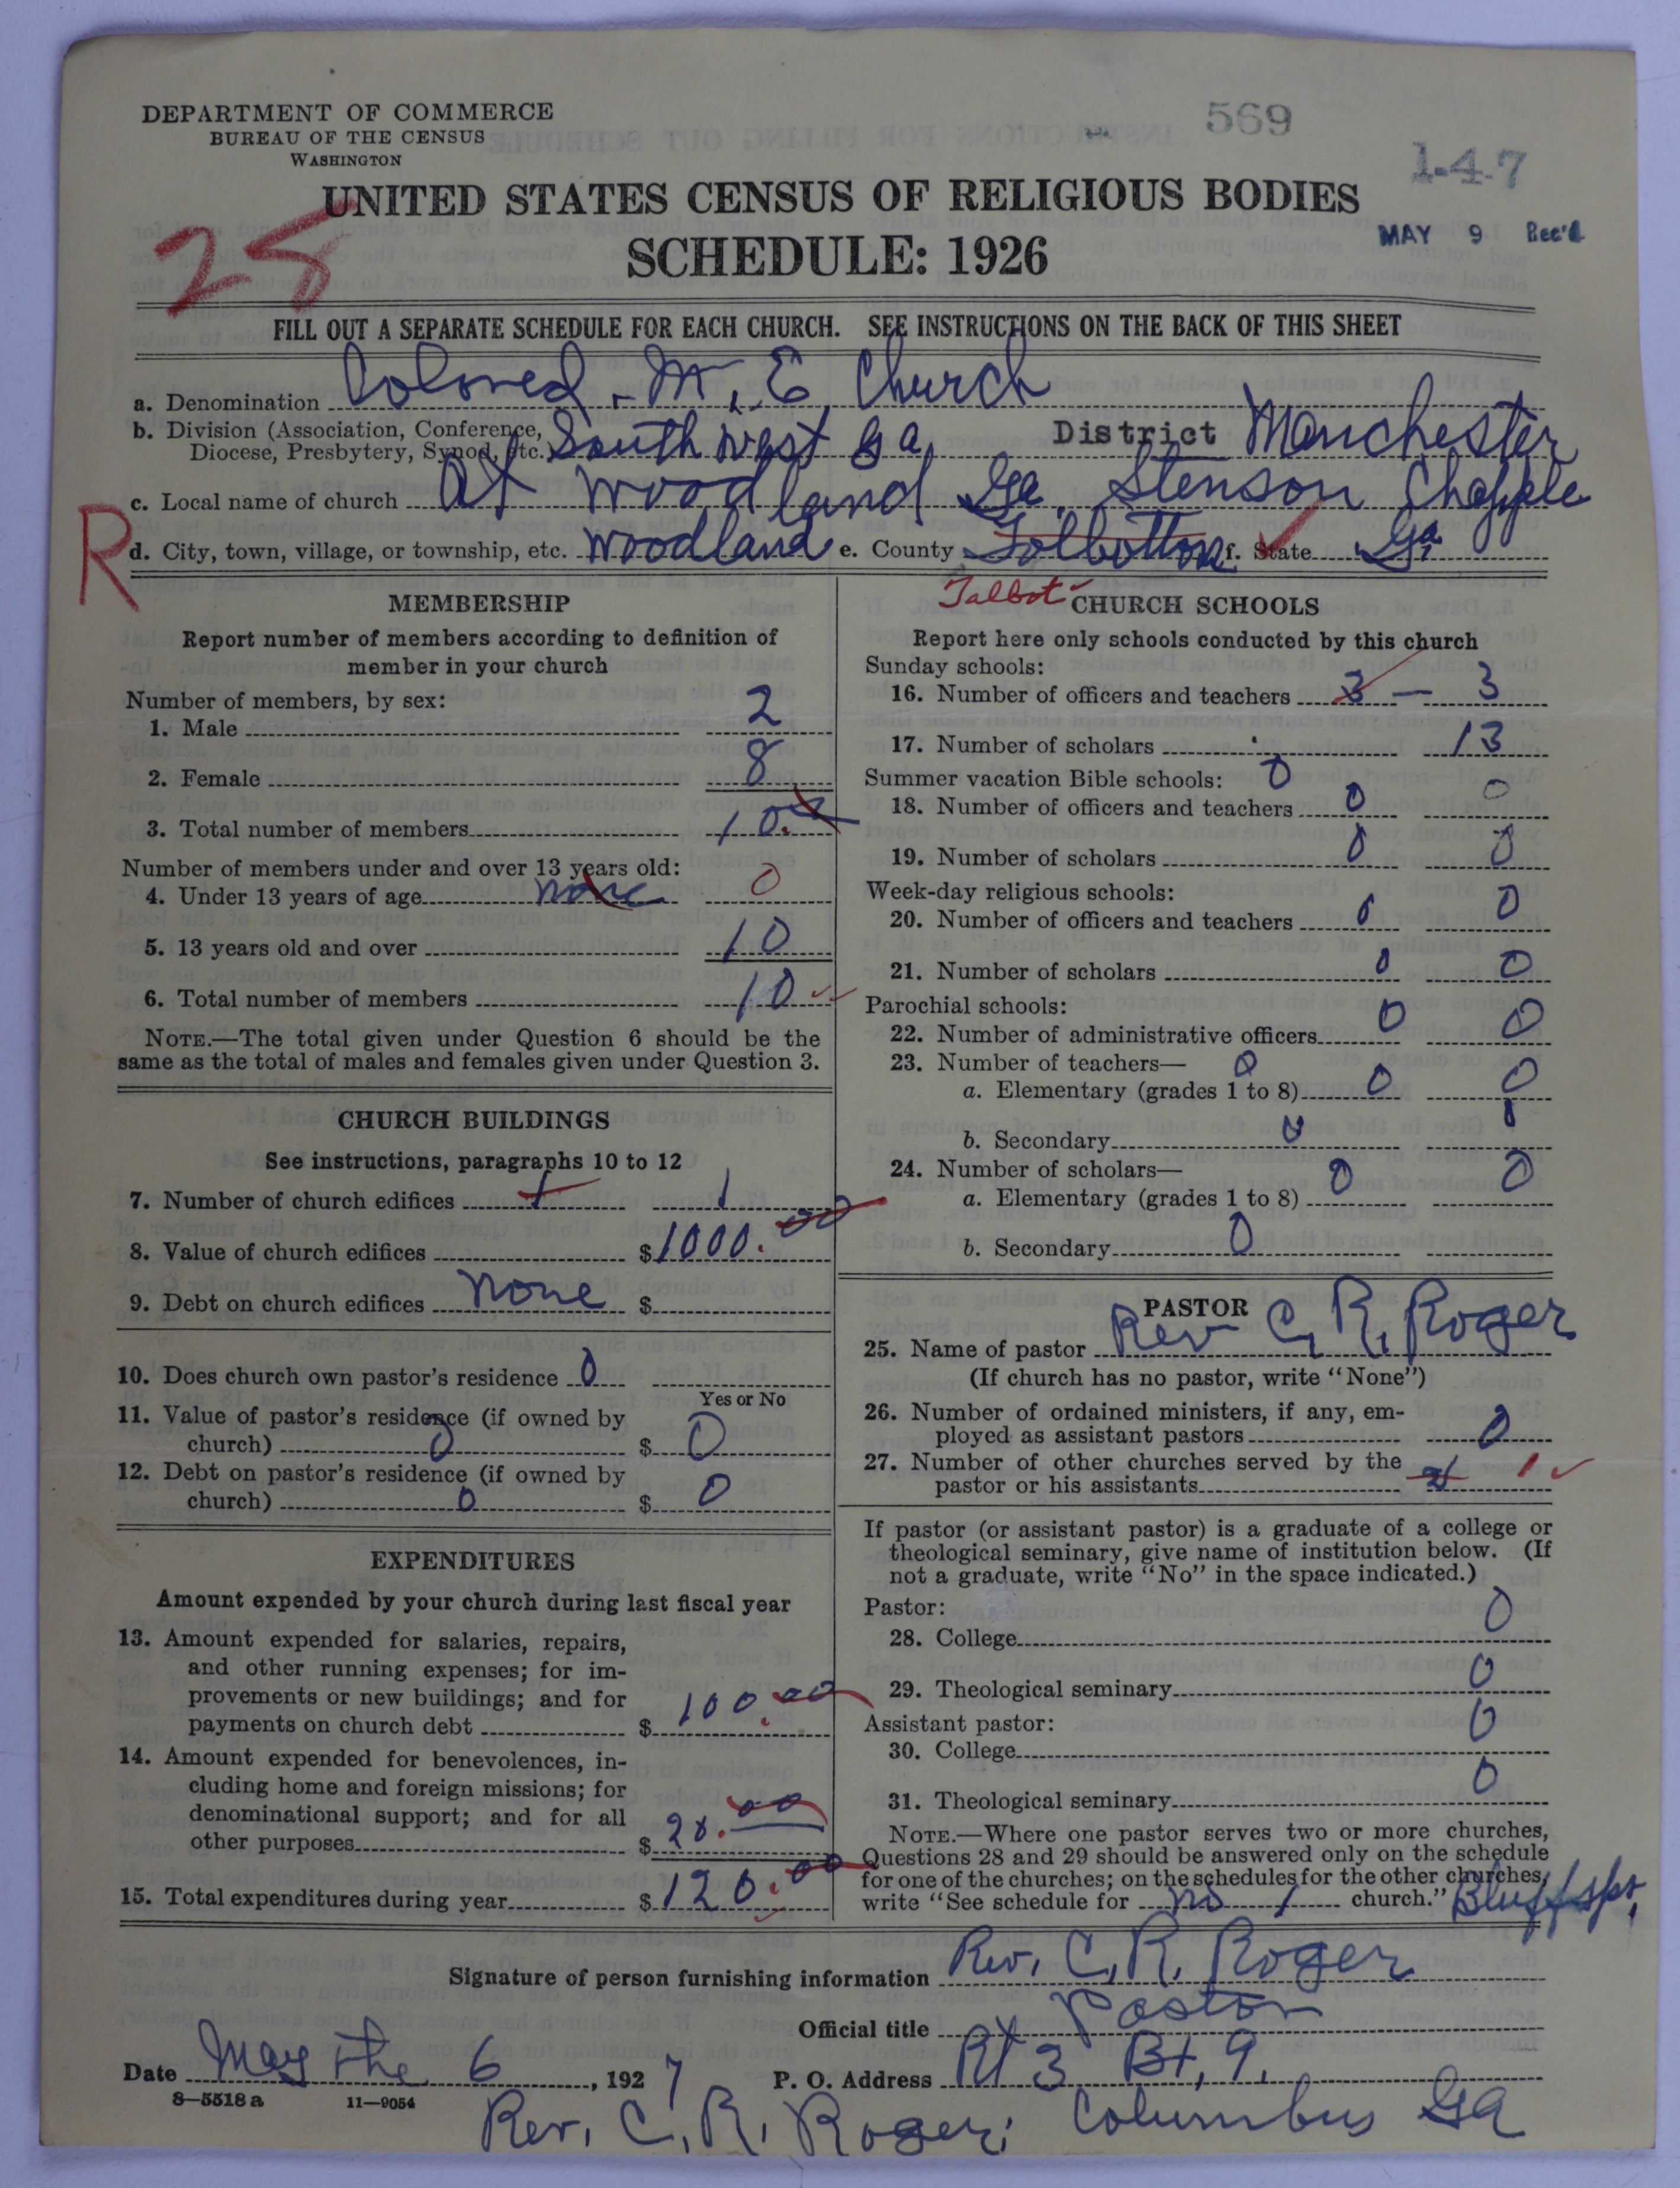 DEPARTMENT OF COMMERCE
BUREAU OF THE CENSUS
WASHINGTON
569
1-4-7
UNITED STATES CENSUS OF RELIGIOUS BODIES
SCHEDULE: 1926
MAY 9 Rec'd
28
FILL OUT A SEPARATE SCHEDULE FOR EACH CHURCH. SEE INSTRUCTIONS ON THE BACK OF THIS SHEET
a. Denomination Colored. M. E. Church
b. Division (Association, Conference, Diocese, Presbytery, Synod, etc. South west Ga District Manchester
c. Local name of church at woodland Ga. Stenson Chapple
R
d. City, town, village, or township, etc. woodland e. County Tolbotton f. State Ga.
Talbot
MEMBERSHIP
Report number of members according to definition of
member in your church
Number of members, by sex:
1. Male 2
2. Female 8
3. Total number of members 10.
Number of members under and over 13 years old:
4. Under 13 years of age none 0
5. 13 years old and over 10
6. Total number of members 10
NOTE.—The total given under Question 6 should be the
same as the total of males and females given under Question 3.
CHURCH BUILDINGS
See instructions, paragraphs 10 to 12
7. Number of church edifices 1 1
8. Value of church edifices $1000.00
9. Debt on church edifices none $
10. Does church own pastor's residence 0
Yes or No
11. Value of pastor's residence (if owned by
church) 0 $ 0
12. Debt on pastor's residence (if owned by
church) 0 $ 0
EXPENDITURES
Amount expended by your church during last fiscal year
13. Amount expended for salaries, repairs,
and other running expenses; for im-
provements or new buildings; and for
payments on church debt $ 100.00
14. Amount expended for benevolences, in-
cluding home and foreign missions; for
denominational support; and for all
other purposes $ 20.00
15. Total expenditures during year $120.00
CHURCH SCHOOLS
Report here only schools conducted by this church
Sunday schools:
16. Number of officers and teachers 3 — 3
17. Number of scholars 13
Summer vacation Bible schools: 0
18. Number of officers and teachers 0 0
19. Number of scholars 0 0
Week-day religious schools:
20. Number of officers and teachers 0 0
21. Number of scholars 0 0
Parochial schools:
22. Number of administrative officers 0 0
23. Number of teachers— 0
a. Elementary (grades 1 to 8) 0 0
b. Secondary 0 0
24. Number of scholars—
a. Elementary (grades 1 to 8) 0 0
b. Secondary 0
PASTOR
25. Name of pastor Rev C. R. Roger
(If church has no pastor, write "None")
26. Number of ordained ministers, if any, em-
ployed as assistant pastors 0
27. Number of other churches served by the
pastor or his assistants 1
If pastor (or assistant pastor) is a graduate of a college or
theological seminary, give name of institution below. (If
not a graduate, write "No" in the space indicated.)
Pastor:
28. College 0
29. Theological seminary 0
Assistant pastor:
30. College 0
31. Theological seminary 0
NOTE.—Where one pastor serves two or more churches,
Questions 28 and 29 should be answered only on the schedule
for one of the churches; on the schedules for the other churches,
write "See schedule for no 1 church." Bluffspr,
Signature of person furnishing information Rev. C. R. Roger
Official title Pastor
Date May the 6, 1927 P. O. Address Rt 3 Bx, 9.
8—5518 a 11—9054
Rev. C. R. Roger; Columbus Ga